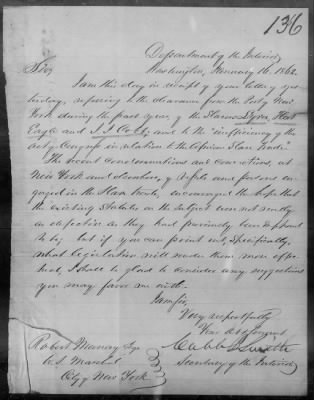 136
Department of the Interior
Washington, January 16, 1862.
Sir,
I am this day in receipt of your letter of yes-
terday, referring to the clearance from the Port of New
York during the past year, of the
Eagle and J. J. Cobb, and to the inefficiency of the
acts of Congress in relation to the African Slave trade.
The recent condemnations and convictions, at
New York and, of vessels and persons en-
gaged in the Slave trade, encouraged the hope that
the existing Statutes on the subject were not really
so defective as they had previously been supposed
to be; but if you can point out, specifically,
what legislation will render them more effec-
tual, I shall be glad to consider any suggestions
you may favor me with.
I am, Sir,
Very respectfully
Your obt. servant
Caleb B. Smith
Secretary of the Interior
Robert Murray Esq
U.S. Marshal
City of New York